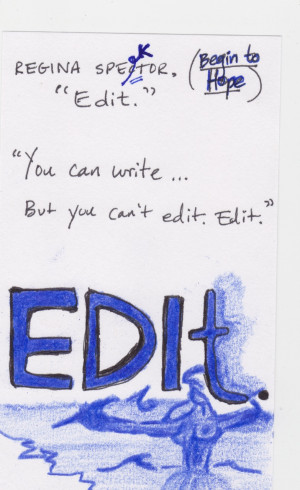 REGINA SPEKTOR. (Begin to
Hope)
"Edit."
"You can write ...
But you can't edit. Edit."
EDIt.